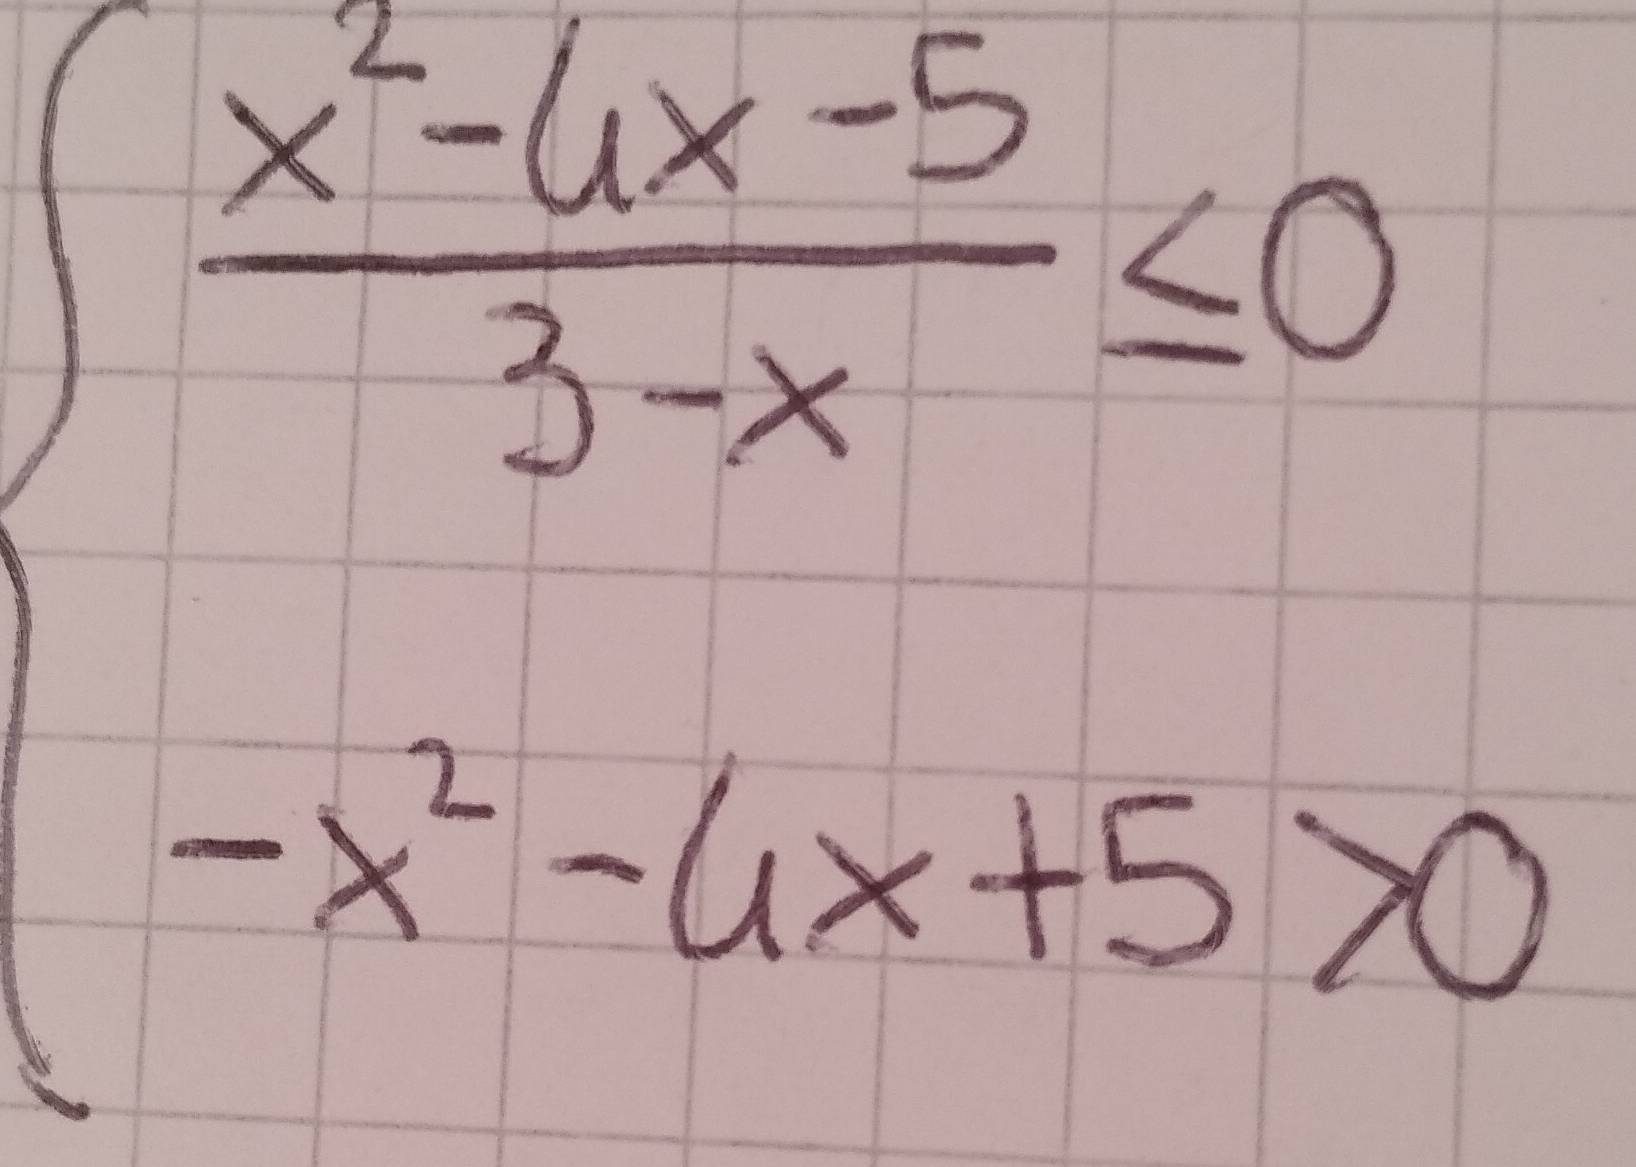 x² - 4x - 5
3 - x
≤ 0
-x² - 4x + 5 > 0